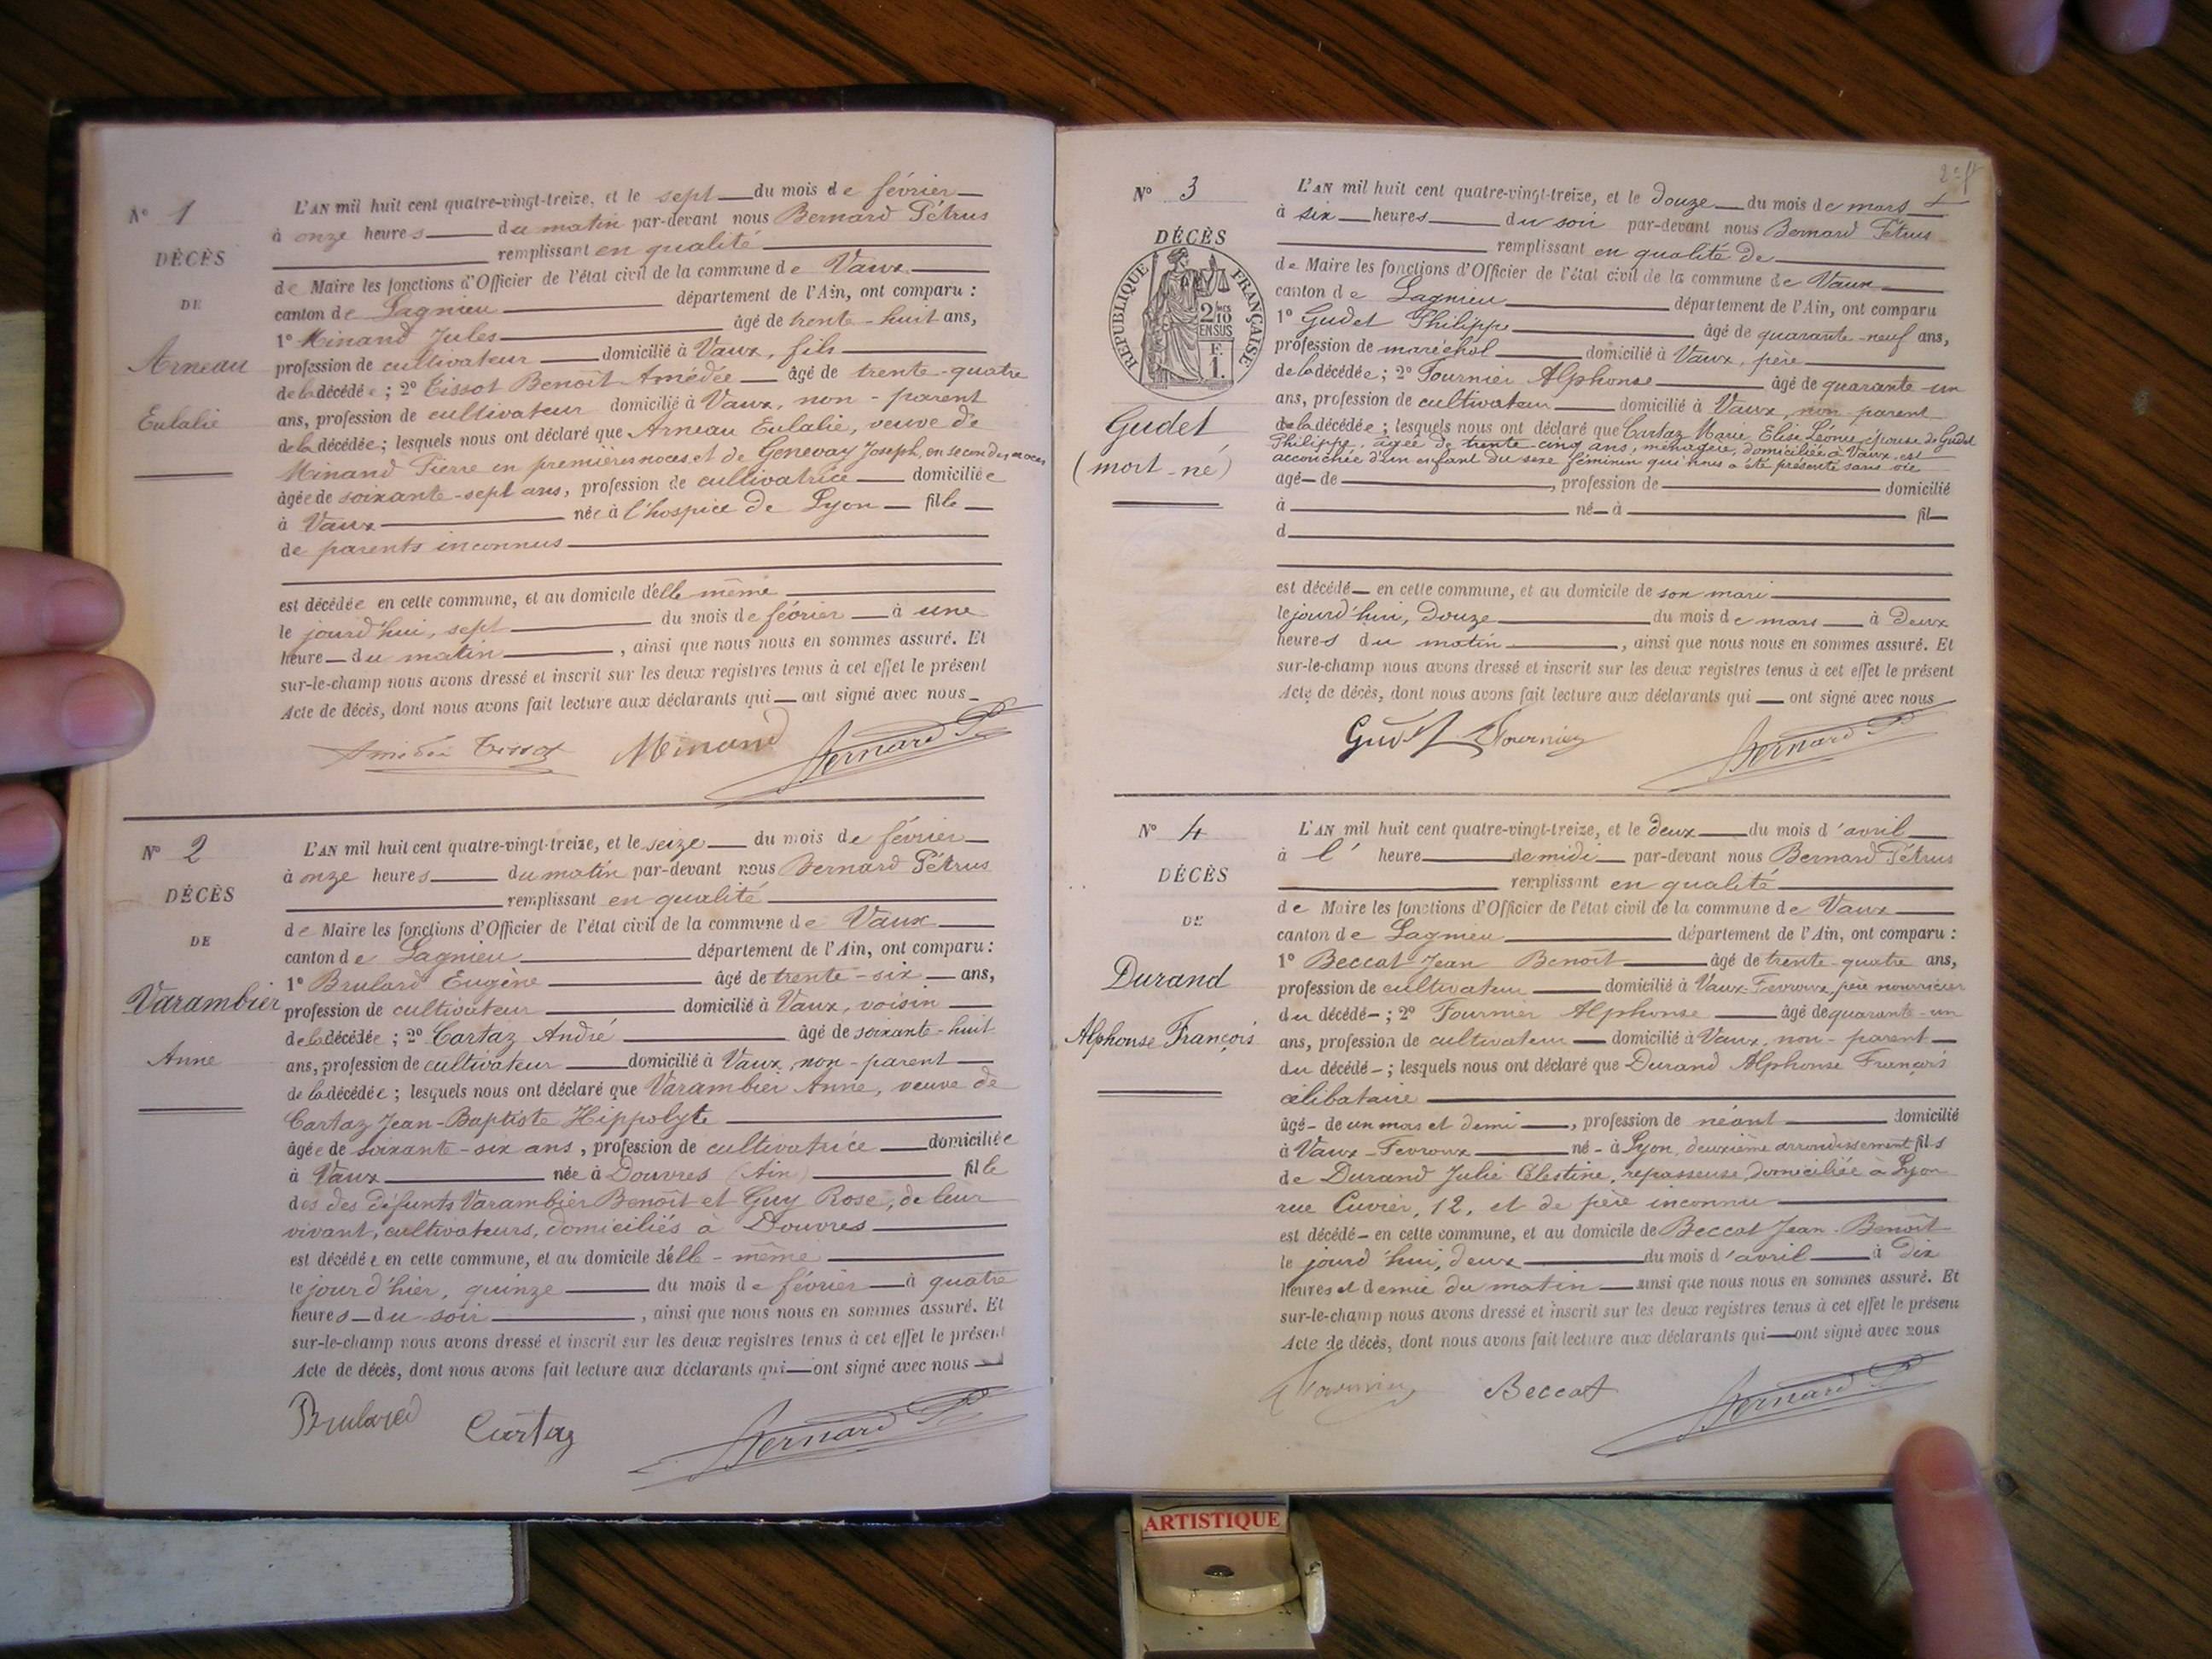 N° 1
DÉCÈS
DE
Arneau
Eulalie
L'AN mil huit cent quatre-vingt-treize, et le sept du mois de février
à onze heures du matin par-devant nous Bernard Pétrus
remplissant en qualité
de Maire les fonctions d'Officier de l'état civil de la commune de Vaux
canton de Lagnieu département de l'Ain, ont comparu :
1° Minand Jules âgé de trente-huit ans,
profession de cultivateur domicilié à Vaux, fils
de la décédée ; 2° Tissot Benoît Amédée âgé de trente-quatre
ans, profession de cultivateur domicilié à Vaux, non-parent
de la décédée ; lesquels nous ont déclaré que Arneau Eulalie, veuve de
Minand Pierre en premières noces et de Genevay Joseph, en secondes noces
âgée de soixante-sept ans, profession de cultivatrice domiciliée
à Vaux née à l'hospice de Lyon fille
de parents inconnus
est décédée en cette commune, et au domicile d'elle même
le jourd'hui, sept du mois de février à une
heure du matin, ainsi que nous nous en sommes assuré. Et
sur-le-champ nous avons dressé et inscrit sur les deux registres tenus à cet effet le présent
Acte de décès, dont nous avons fait lecture aux déclarants qui ont signé avec nous
Amédée Tissot Minand Bernard P.
N° 2
DÉCÈS
DE
Varambier
Anne
L'AN mil huit cent quatre-vingt-treize, et le seize du mois de février
à onze heures du matin par-devant nous Bernard Pétrus
remplissant en qualité
de Maire les fonctions d'Officier de l'état civil de la commune de Vaux
canton de Lagnieu département de l'Ain, ont comparu :
1° Brulard Eugène âgé de trente-six ans,
profession de cultivateur domicilié à Vaux, voisin
de la décédée ; 2° Cartaz André âgé de soixante-huit
ans, profession de cultivateur domicilié à Vaux, non-parent
de la décédée ; lesquels nous ont déclaré que Varambier Anne, veuve de
Cartaz Jean-Baptiste Hippolyte
âgée de soixante-six ans, profession de cultivatrice domiciliée
à Vaux née à Douvres (Ain) fille
des des défunts Varambier Benoît et Guy Rose, de leur
vivant, cultivateurs, domiciliés à Douvres
est décédée en cette commune, et au domicile d'elle-même
le jour d'hier, quinze du mois de février à quatre
heures du soir, ainsi que nous nous en sommes assuré. Et
sur-le-champ nous avons dressé et inscrit sur les deux registres tenus à cet effet le présent
Acte de décès, dont nous avons fait lecture aux déclarants qui ont signé avec nous
Brulard Cartaz Bernard P.
N° 3
DÉCÈS
RÉPUBLIQUE FRANÇAISE
2/10
EN SUS
F.
1.
Gudet
(mort-né)
L'AN mil huit cent quatre-vingt-treize, et le douze du mois de mars
à six heures du soir par-devant nous Bernard Pétrus
remplissant en qualité de
de Maire les fonctions d'Officier de l'état civil de la commune de Vaux
canton de Lagnieu département de l'Ain, ont comparu
1° Gudet Philippe âgé de quarante-neuf ans,
profession de maréchal domicilié à Vaux, père
de la décédée ; 2° Fournier Alphonse âgé de quarante-un
ans, profession de cultivateur domicilié à Vaux, non parent
de la décédée ; lesquels nous ont déclaré que Cartaz Marie Elise Léonie, épouse de Gudet
Philippe, âgée de trente-cinq ans, ménagère, domiciliée à Vaux, est
accouchée d'un enfant du sexe féminin qui nous a été présenté sans vie
âgé de, profession de domicilié
à né à fil
d
est décédé en cette commune, et au domicile de son mari
le jourd'hui, douze du mois de mars à deux
heures du matin, ainsi que nous nous en sommes assuré. Et
sur-le-champ nous avons dressé et inscrit sur les deux registres tenus à cet effet le présent
Acte de décès, dont nous avons fait lecture aux déclarants qui ont signé avec nous
Gudet Fournier Bernard P.
N° 4
DÉCÈS
DE
Durand
Alphonse François
L'AN mil huit cent quatre-vingt-treize, et le deux du mois d'avril
à l' heure de midi par-devant nous Bernard Pétrus
remplissant en qualité
de Maire les fonctions d'Officier de l'état civil de la commune de Vaux
canton de Lagnieu département de l'Ain, ont comparu :
1° Beccat Jean Benoît âgé de trente-quatre ans,
profession de cultivateur domicilié à Vaux-Fevroux, père nourricier
du décédé ; 2° Fournier Alphonse âgé de quarante-un
ans, profession de cultivateur domicilié à Vaux, non-parent
du décédé ; lesquels nous ont déclaré que Durand Alphonse François
célibataire
âgé de un mois et demi, profession de néant domicilié
à Vaux-Fevroux né à Lyon, deuxième arrondissement fils
de Durand Julie Célestine, repasseuse, domiciliée à Lyon
rue Cuvier, 12, et de père inconnu
est décédé en cette commune, et au domicile de Beccat Jean-Benoît
le jourd'hui, deux du mois d'avril à dix
heures et demie du matin ainsi que nous nous en sommes assuré. Et
sur-le-champ nous avons dressé et inscrit sur les deux registres tenus à cet effet le présent
Acte de décès, dont nous avons fait lecture aux déclarants qui ont signé avec nous
Fournier Beccat Bernard P.
ARTISTIQUE